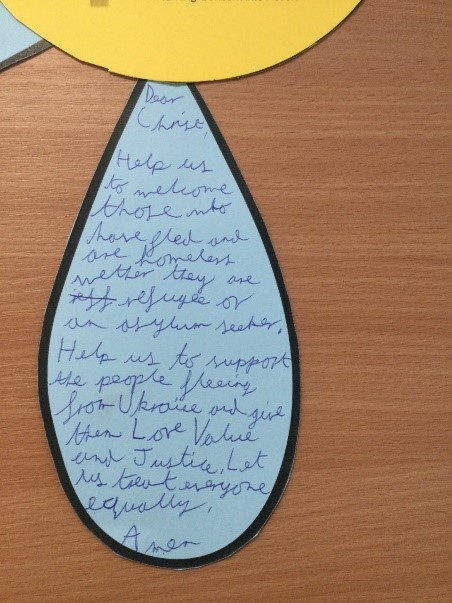 Dear
Christ,
Help us
to welcome
those who
have fled and
are homeless
wether they are
refugee or
an asylum seeker.
Help us to support
the people fleeing
from Ukraice and give
them Love Value
and Justice. Let
us treat everyone
equally.
Amen